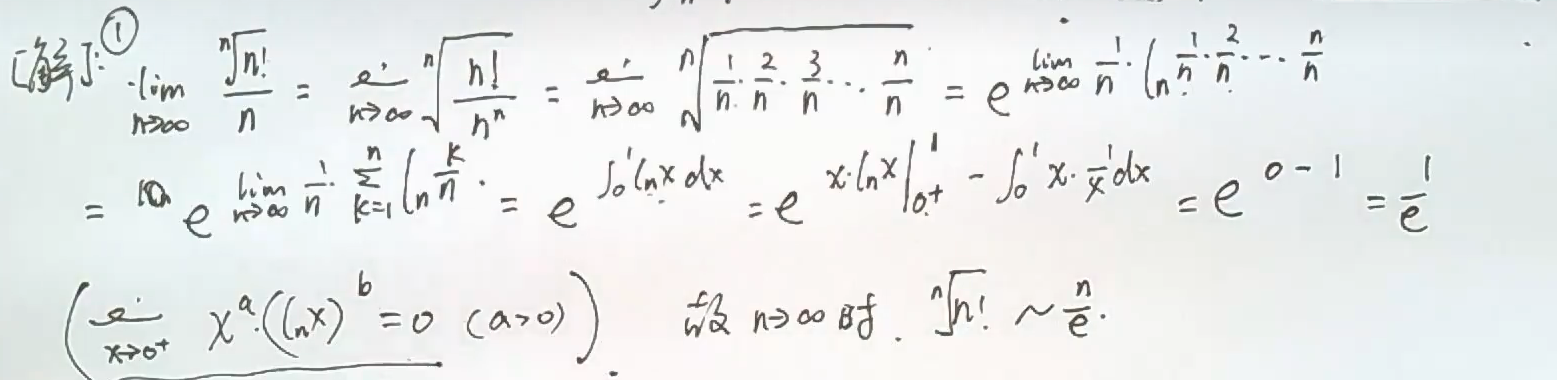 [解]: ① lim_{n→∞} \frac{\sqrt[n]{n!}}{n} = lim_{n→∞} \sqrt[n]{\frac{n!}{n^n}} = lim_{n→∞} \sqrt[n]{\frac{1}{n}·\frac{2}{n}·\frac{3}{n}···\frac{n}{n}} = e^{lim_{n→∞} \frac{1}{n}·ln \frac{1}{n}·\frac{2}{n}···\frac{n}{n}}
= e^{lim_{n→∞} \frac{1}{n}·∑_{k=1}^{n} ln \frac{k}{n}} = e^{∫_0^1 ln x dx} = e^{x·ln x |_{0^+}^1 - ∫_0^1 x·\frac{1}{x} dx} = e^{0-1} = \frac{1}{e}
(lim_{x→0^+} x^a·(ln x)^b = 0 (a>0)). 故 n→∞ 时. \sqrt[n]{n!} ~ \frac{n}{e}.